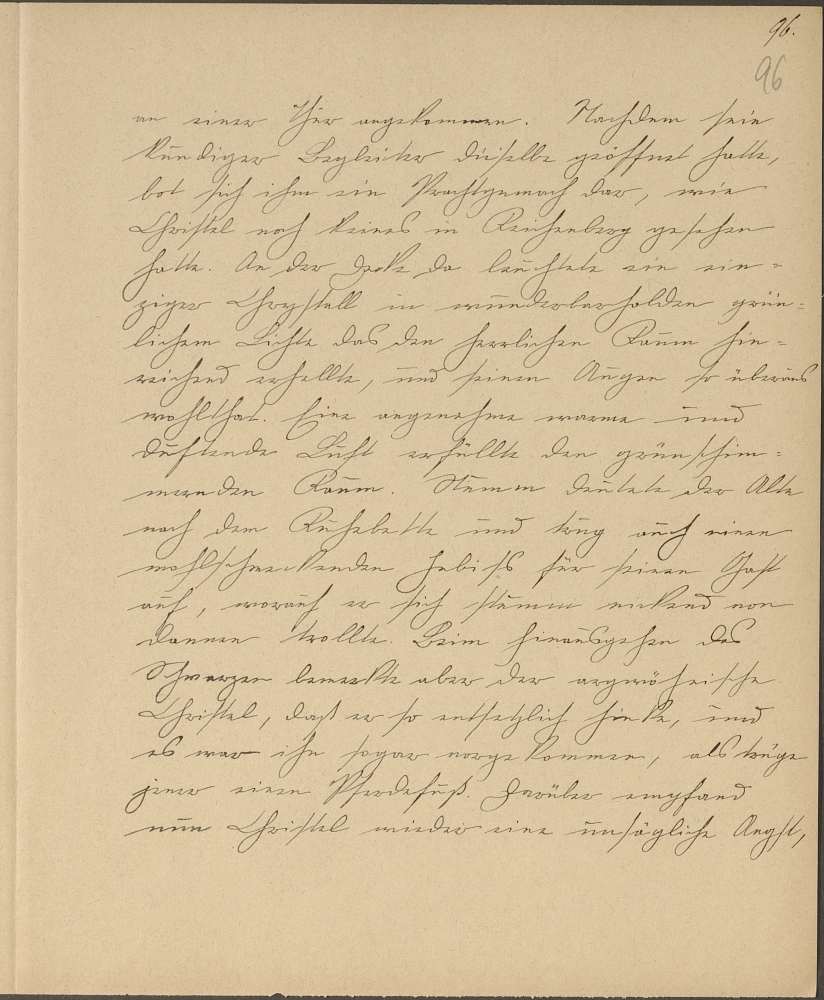 96.
96
an einer Thür angekommen. Nachdem sein
kundiger Begleiter dieselbe geöffnet hatte,
bot sich ihm ein Prachtgemach dar, wie
Christel noch keines in Reichenberg gesehen
hatte. An der Decke da leuchtete ein ein-
ziger Chrystall in wunderbarholden grün-
lichem Lichte das den herrlichen Raum hin-
reichend erhellte, und seinen Augen so überaus
wohlthat. Eine angenehme warme und
duftende Luft erfüllte den grünschim-
mernden Raum. Stumm deutete der Alte
nach dem Ruhebette und trug auch einen
wohlschmeckenden Imbiss für seinen Gast
auf, worauf er sich stumm nickend von
dannen trollte. Beim Hinausgehen des
Schwarzen bemerkte aber der argwöhnische
Christel, daß er so entsetzlich hinke, und
es war ihm sogar vorgekommen, als trüge
jener einen Pferdefuß. Darüber empfand
nun Christel wieder eine unsägliche Angst,